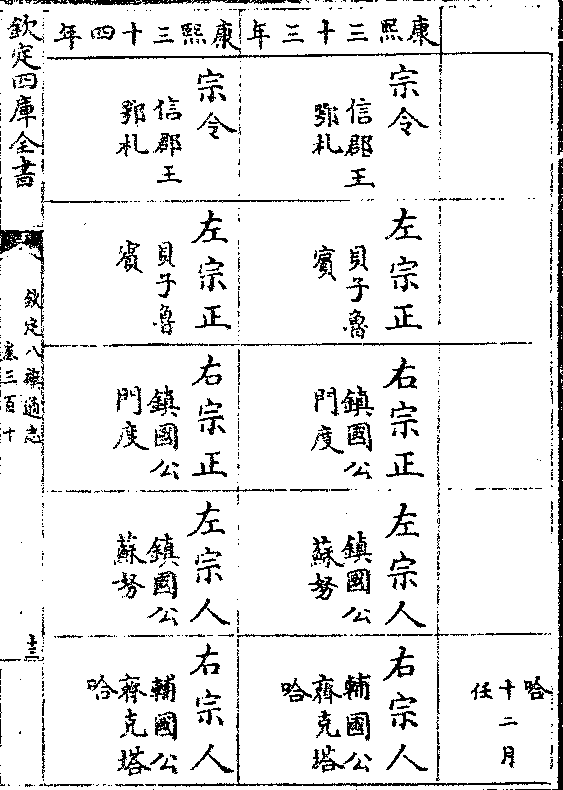 哈
十二月
任
康熙三十三年
宗令
信郡王
鄂札
左宗正
貝子魯
賓
右宗正
鎮國公
門度
左宗人
鎮國公
蘇努
右宗人
輔國公
齊克塔
哈
康熙三十四年
宗令
信郡王
鄂札
左宗正
貝子魯
賓
右宗正
鎮國公
門度
左宗人
鎮國公
蘇努
右宗人
輔國公
齊克塔
哈
欽定四庫全書
欽定八旗通志
卷三百十
十三